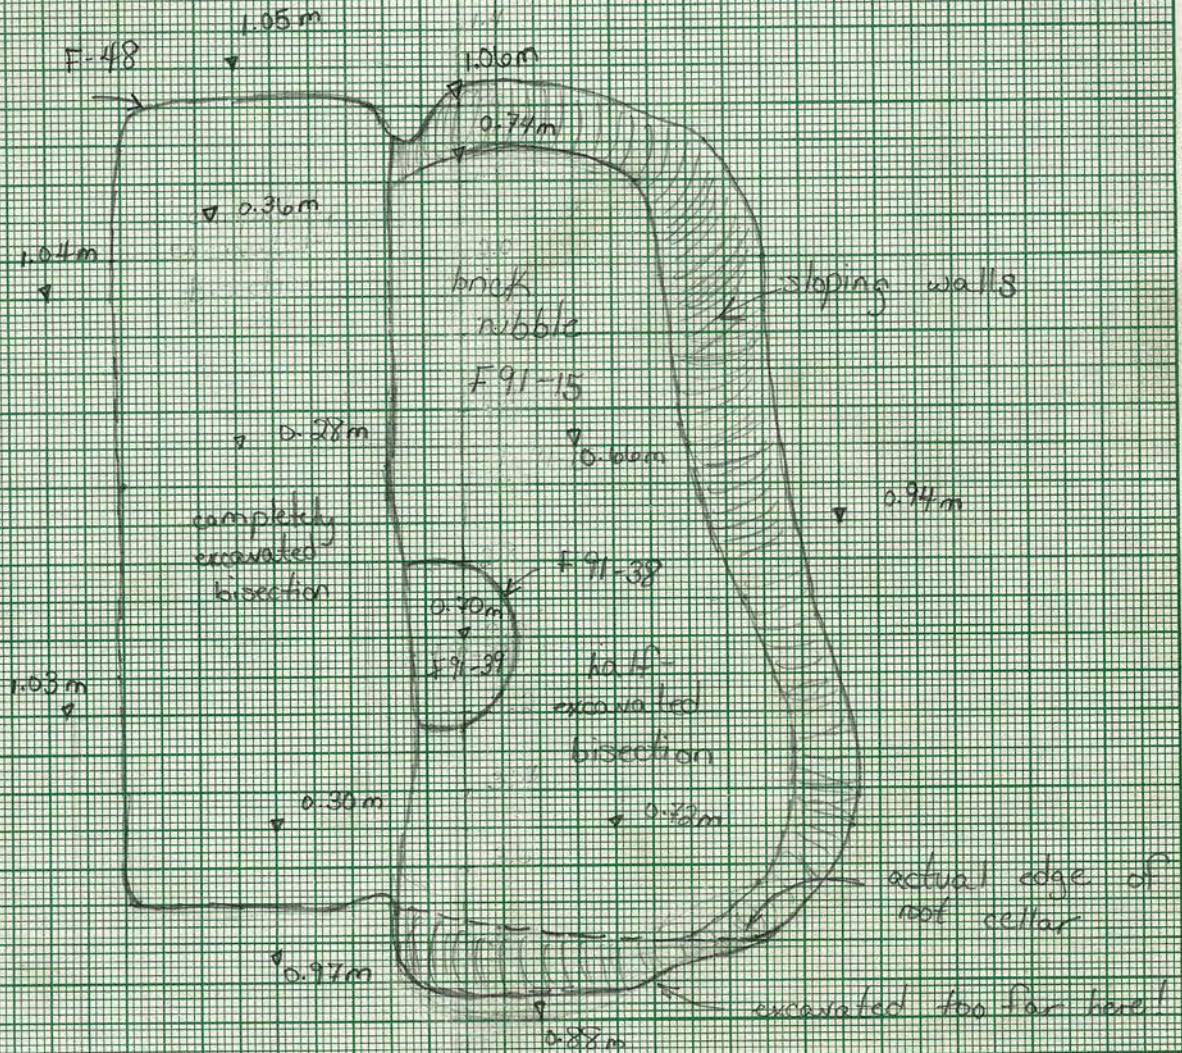 1.05 m
F-48
1.06m
0.74m
0.36m
1.04m
brick
rubble
sloping walls
F91-15
0.28m
0.66m
0.94m
completely
excavated
bisection
F91-38
0.70m
F91-39
half-
excavated
bisection
1.03m
0.30m
0.72m
actual edge of
root cellar
0.97m
excavated too far here!
0.88m